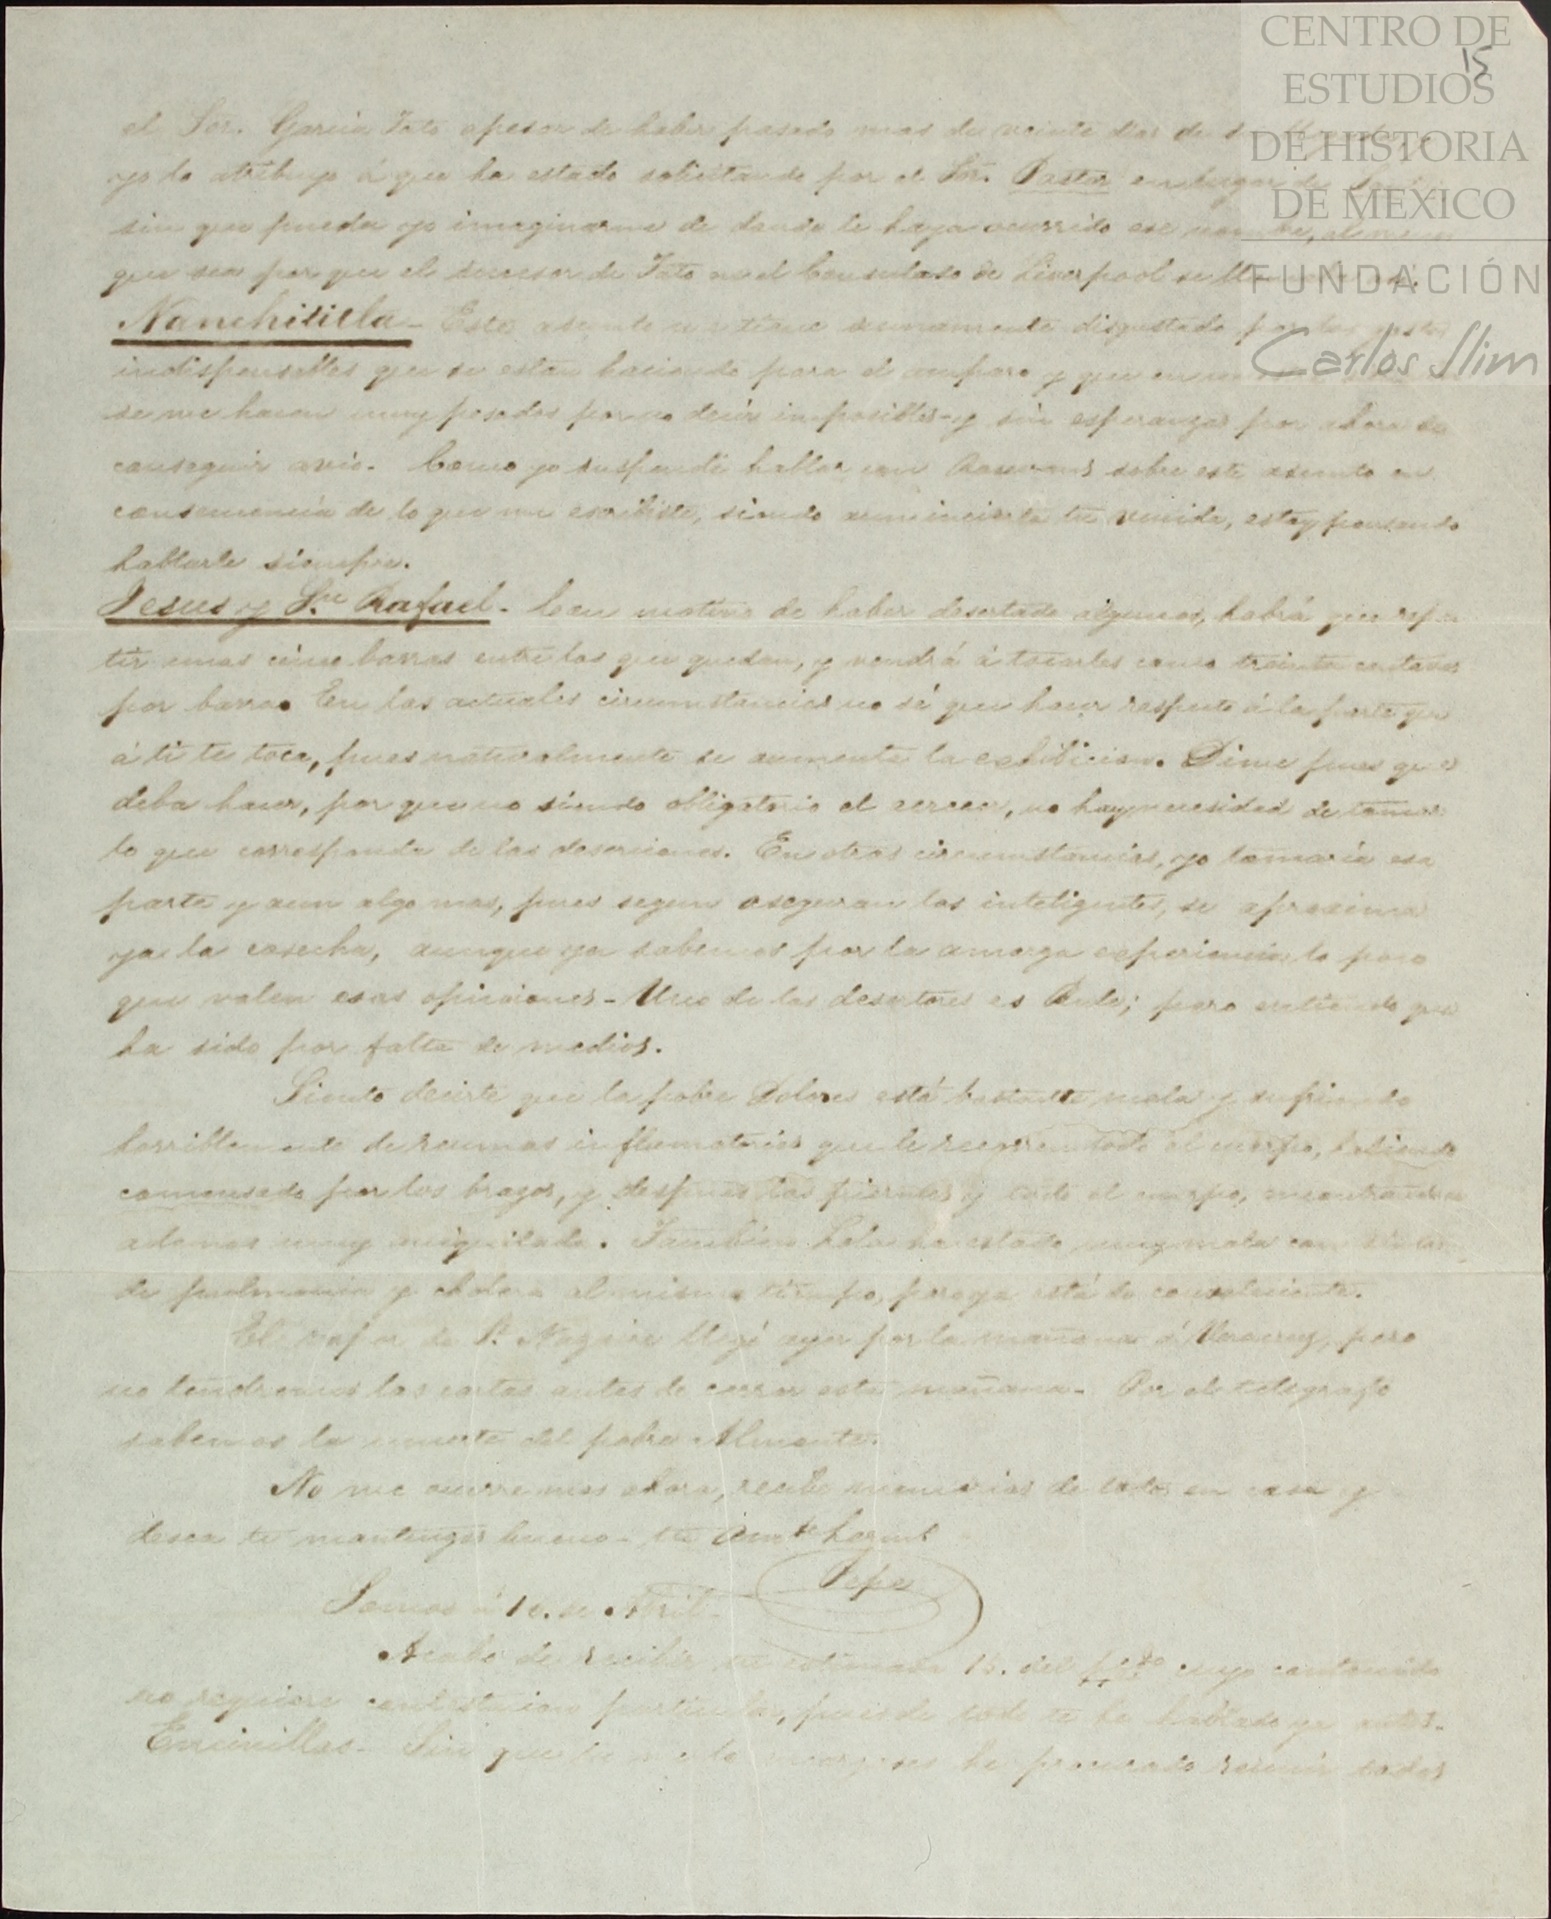 CENTRO DE
ESTUDIOS
DE HISTORIA
DE MEXICO
FUNDACIÓN
Carlos Slim
15
el Sor. Garcia Tato apesar de haber pasado mas de veinte dias de su
yo lo atribuyo á que ha estado solicitando por el Sor. Pastor en lugar de
sin que pueda yo imaginarme de donde le haya ocurrido ese nombre, al menos
que sea por que el sucesor de Tato en el Consulado de Liverpool se
Nanchititla - Este asunto me tiene sumamente disgustado por los gastos
indispensables que se estan haciendo para el amparo y que en
se me hacen muy pesados por no decir imposibles - y sin esperanzas por ahora de
conseguir avio. Como yo suspendi hablar con sobre este asunto en
consecuencia de lo que me escribiste, siendo aun incierta tu venida, estoy pensando
hablarle siempre.
Jesus y Sn. Rafael - Con motivo de haber desertado algunos, habrá que repar
tir unas cinco barras entre los que quedan, y vendrá á tocarles como treinta centavos
por barra. En las actuales circunstancias no sé que hacer respecto á la parte que
á ti te toca, pues naturalmente se aumenta la exhibicion. Dime pues que es
deba hacer, por que no siendo obligatorio el acrecer, no hay necesidad de tomar
lo que corresponda de las deserciones. En otras circumstancias, yo tomaría esa
parte y aun algo mas, pues segun aseguran los inteligentes, se aproxima
ya la cosecha, aunque ya sabemos por la amarga experiencia lo poco
que valen esas opiniones - Uno de los desertores es Rule; pero entiendo que
ha sido por falta de medios.
Siento decirte que la pobre Dolores está bastante mala y sufriendo
horriblemente de reumas inflamatorias que le recorren todo el cuerpo, habiendo
comensado por los brazos, y despues las piernas y todo el cuerpo, encontrandose
ademas muy aniquilada. Tambien Lola ha estado muy mala con
de pulmonia y cholera al mismo tiempo, pero ya está de convaleciente.
El vapor de St. Nazaire llegó ayer por la mañana á Veracruz, pero
no tendremos las cartas antes de cerrar esta mañana. Por el telegrafo
sabemos la muerte del pobre Almonte.
No me ocurre mas ahora, recibe memorias de todos en casa y
desea te mantengas bueno - tu
Pepe
Somos á 10. de Abril -
Acabo de recibir tu estimada 15. del cuyo contenido
no requiere contestacion particular, pues de todo te he hablado ya antes.
Encinillas - Sin que tu me lo encargases he procurado reunir todos